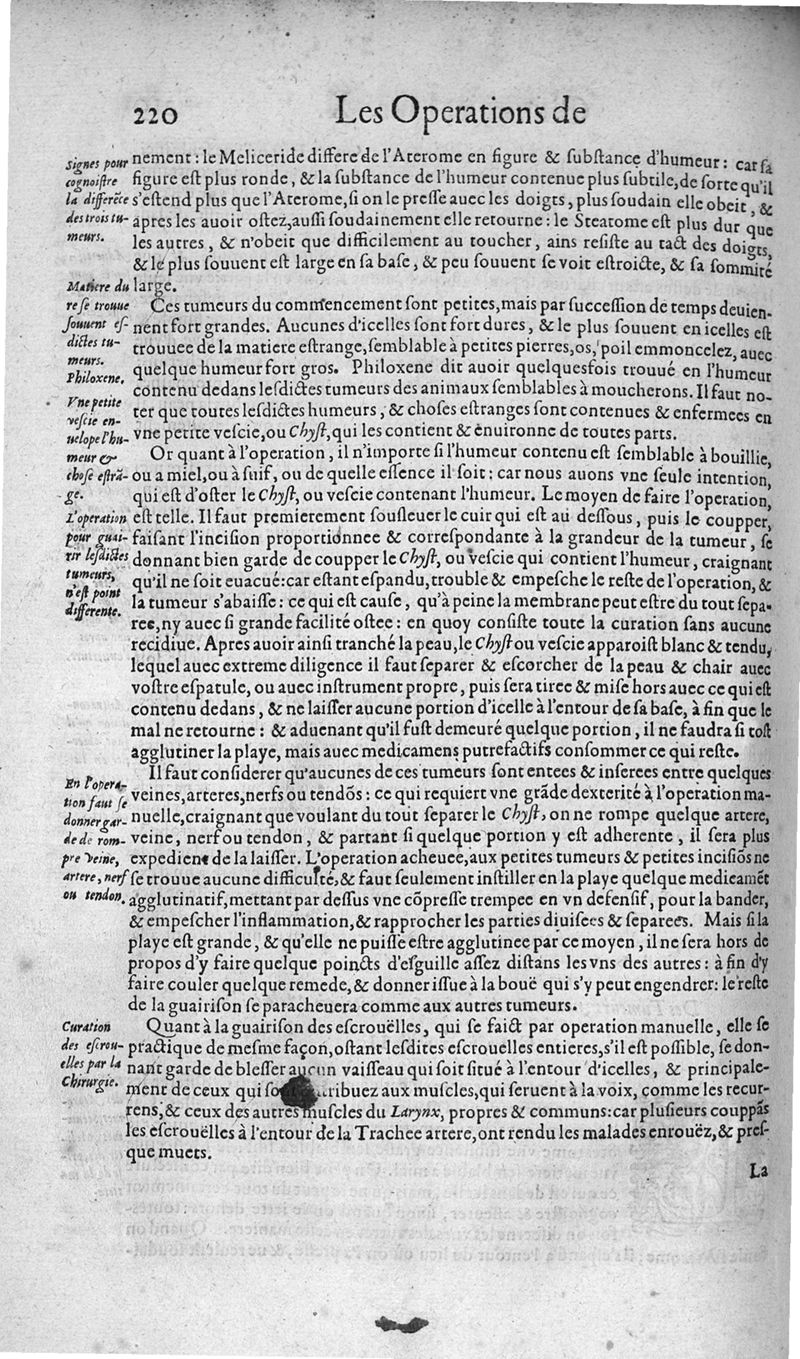 220 Les Operations de
Signes pour
cognoiſtre
la differēce
des trois tu-
meurs.
nement : le Meliceride differe de l'Aterome en figure & ſubſtance d'humeur : car ſa
figure eſt plus ronde, & la ſubſtance de l'humeur contenue plus ſubtile, de ſorte qu'il
s'eſtend plus que l'Aterome, ſi on le preſſe auec les doigts, plus ſoudain elle obeit, &
apres les auoir oſtez, auſſi ſoudainement elle retourne : le Steatome eſt plus dur que
les autres, & n'obeit que difficilement au toucher, ains reſiſte au tact des doigts,
& le plus ſouuent eſt large en ſa baſe, & peu ſouuent ſe voit eſtroicte, & ſa ſommité
large.
Matiere du
re ſe trouue
ſouuent eſ-
dictes tu-
meurs.
Philoxene.
Vne petite
veſcie en-
uelope l'hu-
meur &
choſe eſtrā-
ge.
Ces tumeurs du commencement ſont petites, mais par ſucceſſion de temps deuien-
nent fort grandes. Aucunes d'icelles ſont fort dures, & le plus ſouuent en icelles eſt
trouuee de la matiere eſtrange, ſemblable à petites pierres, os, poil emmoncelez, auec
quelque humeur fort gros. Philoxene dit auoir quelquesfois trouué en l'humeur
contenu dedans leſdictes tumeurs des animaux ſemblables à moucherons. Il faut no-
ter que toutes leſdictes humeurs, & choſes eſtranges ſont contenues & enfermees en
vne petite veſcie, ou Chyſt, qui les contient & enuironne de toutes parts.
L'operation
pour guai-
rir leſdictes
tumeurs,
n'eſt point
differente.
Or quant à l'operation, il n'importe ſi l'humeur contenu eſt ſemblable à bouillie,
ou a miel, ou à ſuif, ou de quelle eſſence il ſoit : car nous auons vne ſeule intention,
qui eſt d'oſter le Chyſt, ou veſcie contenant l'humeur. Le moyen de faire l'operation,
eſt telle. Il faut premierement ſouſleuer le cuir qui eſt au deſſous, puis le coupper,
faiſant l'inciſion proportionnee & correſpondante à la grandeur de la tumeur, ſe
donnant bien garde de coupper le Chyſt, ou veſcie qui contient l'humeur, craignant
qu'il ne ſoit euacué : car eſtant eſpandu, trouble & empeſche le reſte de l'operation, &
la tumeur s'abaiſſe : ce qui eſt cauſe, qu'à peine la membrane peut eſtre du tout ſepa-
ree, ny auec ſi grande facilité oſtee : en quoy conſiſte toute la curation ſans aucune
recidiue. Apres auoir ainſi tranché la peau, le Chyſt ou veſcie apparoiſt blanc & tendu,
lequel auec extreme diligence il faut ſeparer & eſcorcher de la peau & chair auec
voſtre eſpatule, ou auec inſtrument propre, puis ſera tiree & miſe hors auec ce qui eſt
contenu dedans, & ne laiſſer aucune portion d'icelle à l'entour de ſa baſe, à fin que le
mal ne retourne : & aduenant qu'il fuſt demeuré quelque portion, il ne faudra ſi toſt
agglutiner la playe, mais auec medicamens putrefactifs conſommer ce qui reſte.
En l'opera-
tion faut ſe
donner gar-
de de rom-
pre veine,
artere, nerf
ou tendon.
Il faut conſiderer qu'aucunes de ces tumeurs ſont entees & inſerees entre quelques
veines, arteres, nerfs ou tendōs : ce qui requiert vne grāde dexterité à l'operation ma-
nuelle, craignant que voulant du tout ſeparer le Chyſt, on ne rompe quelque artere,
veine, nerf ou tendon, & partant ſi quelque portion y eſt adherente, il ſera plus
expedient de la laiſſer. L'operation acheuee, aux petites tumeurs & petites inciſiōs ne
ſe trouue aucune difficulté, & faut ſeulement inſtiller en la playe quelque medicamēt
agglutinatif, mettant par deſſus vne cōpreſſe trempee en vn defenſif, pour la bander,
& empeſcher l'inflammation, & rapprocher les parties diuiſees & ſeparees. Mais ſi la
playe eſt grande, & qu'elle ne puiſſe eſtre agglutinee par ce moyen, il ne ſera hors de
propos d'y faire quelque poincts d'eſguille aſſez diſtans les vns des autres : à fin d'y
faire couler quelque remede, & donner iſſue à la bouë qui s'y peut engendrer : le reſte
de la guairiſon ſe paracheuera comme aux autres tumeurs.
Curation
des eſcrou-
elles par la
Chirurgie.
Quant à la guairiſon des eſcrouëlles, qui ſe faict par operation manuelle, elle ſe
practique de meſme façon, oſtant leſdites eſcrouelles entieres, s'il eſt poſſible, ſe don-
nant garde de bleſſer aucun vaiſſeau qui ſoit ſitué à l'entour d'icelles, & principale-
ment de ceux qui ribuez aux muſcles, qui ſeruent à la voix, comme les recur-
rens, & ceux des autres muſcles du Larynx, propres & communs : car pluſieurs couppās
les eſcrouëlles à l'entour de la Trachee artere, ont rendu les malades enrouëz, & preſ-
que muets.
La